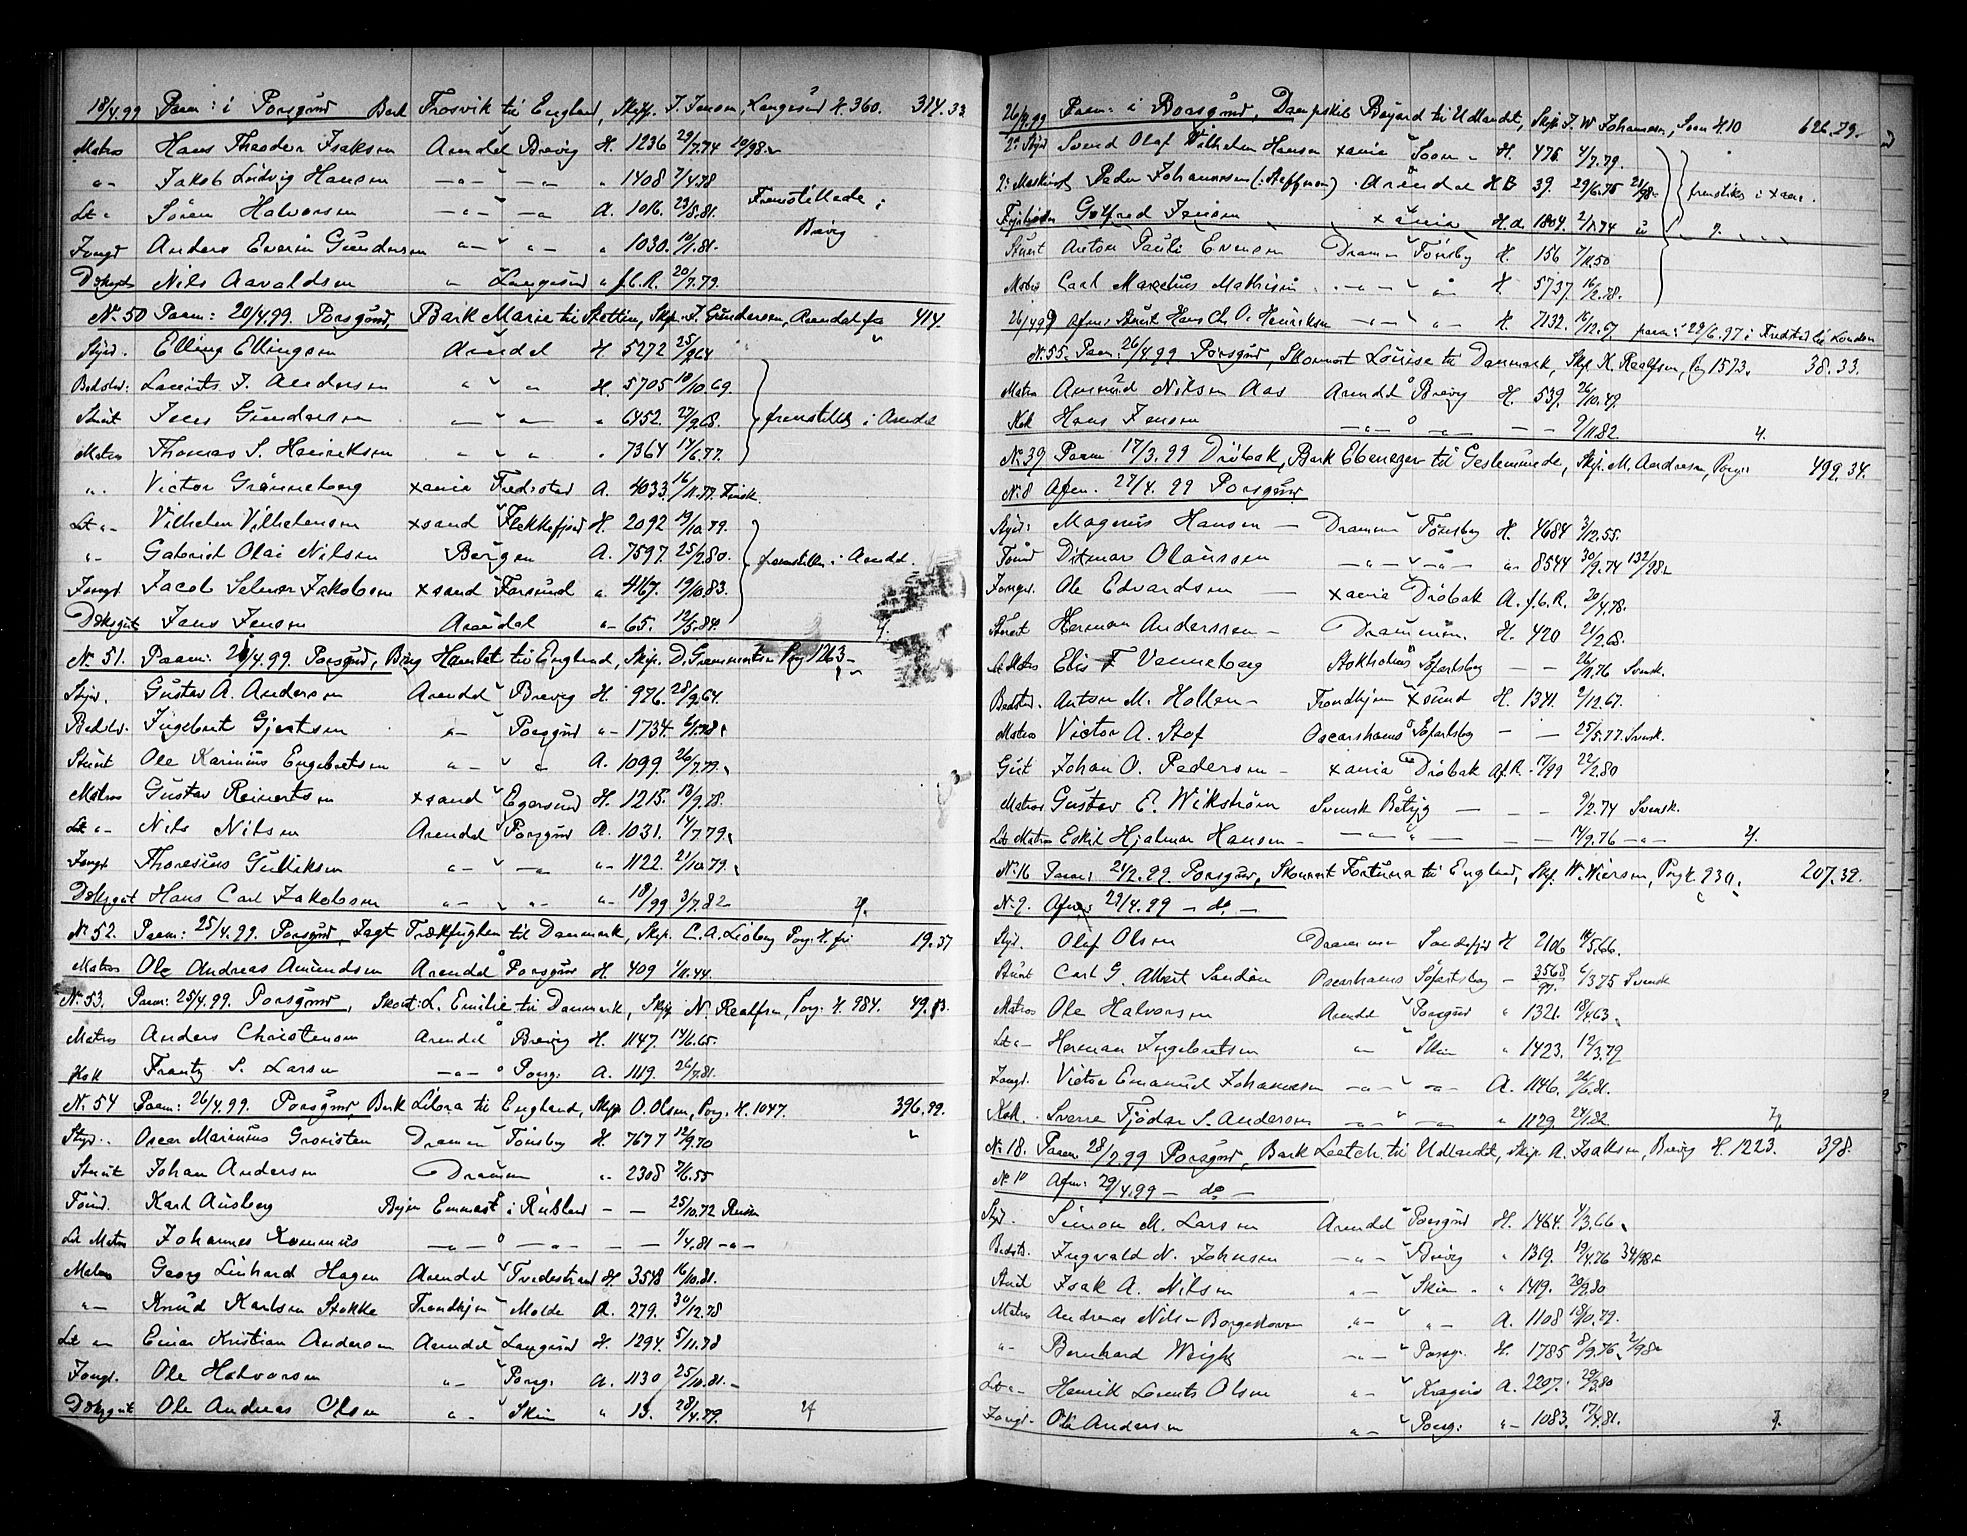 18/4.99 Paam: i Porsgrund Bark Frosvik til England, Skpp. J. Jensen, Langesund H. 360. 314.33
Matros Hans Theodor Isaksen Arendal Brevig H. 1236 29/7.74 10/98
"- Jakob Ludvig Hansen -"- -"- " 1408 7/4.78
Lt " Søren Halvorsen -"- -"- A. 1016. 23/8.81. Fremstillede i Brevig
Jungd Anders Everin Gundersen "- "- " 1030. 10/1.81.
Dæksgt Nils Aavaldsen " Langesund " f.C.R. 20/7.79.
No 50 Paam: 20/4.99. Porsgrund, Bark Marie til Stettin, Skp. J. Gundersen, Arendal 414.
Styrd. Elling Ellingsen Arendal H. 5272 25/9.64
Bedstvd: Laurits J. Andersen " " H. 5705 18/10.69.
Stuert Jens Gundersen " -"- " 6452. 27/9.68. fremstilles i Arendal
Matros Thomas S. Henriksen " " " 7364 14/6.77.
". Victor Grønneberg xania Fredrstad A. 4033. 16/11.77. Finsk.
Lt "- Vilhelm Vilhelmsen xsand Flekkefjord H. 2092 19/10.79.
"- Gabriel Olai Nilsen Bergen A. 7597. 25/2.80. fremstilles i Arendal
Jungd. Jacob Selmer Jakobsen xsand Farsund " 467. 19/10.83.
Dæksgut Jens Jensen Arendal "- 65. 12/5.84.
No 51. Paam: 20/4.99. Porsgrund, Brig Hamlet til England, Skip. D. Porsg 1263
Styrd. Gustav A. Andersen Arendal Brevig H. 976. 28/9.64.
Bedstvd. Ingebret Gjertsen "- Porsgrund "- 1734. 6/1.78
Stuert Ole Karinius Engebretsen "- " A. 1099. 26/7.79.
Matros Gustav Reinertsen xsand Egersund H. 1215. 13/9.78.
Lt "- Nils Nilsen Arendal Porsgrund A. 1031. 14/7.79.
Jungd Thoresius Gulliksen "- -"- "- 1122. 21/10.79.
Dæksgut Hans Carl Jakobsen "- "- "- 18/99 3/7.82
No 52. Paam: 25/4.99. Porsgrund, Jagt Trækfuglen til Danmark, Skip. C. A. Lidberg Porsg. H. fri 19.37
Matros Ole Andreas Amundsen Arendal Porsgrund H. 409 1/11.44.
No 53. Paam: 25/4.99. Porsgrund, Skont: L. Emilie til Danmark, Skip N. Realfsen, Porsg. H. 984. 49.83.
Matros Anders Christensen Arendal Brevig H. 1147. 14/6.65.
Kok Frantz S. Larsen -"- Porsg: A. 1119. 26/7.81.
No 54 Paam: 26/4.99. Porsgrund, Bark Libra til England, Skpp. O. Olsen, Porsg. H. 1047. 396.99.
Styrd. Oscar Marinius Gronsten Drammen Tønsberg H. 7677 12/9.70
Stuert Johan Andersen Drammen ". 2308 7/6.55
Tømd. Karl Ausberg Byen Emmast i Rusland - - 25/10.72 Russer
Lt Matros Johannes Kommus -"- -"- - - 1/4.81 -"-
Matros Georg Linhard Hagen Arendal Tvedestrand H. 3548 16/10.81.
"- Knud Karlsen Stokke Trondhjem Molde A. 279. 30/12.78
Lt "- Einar Kristian Andersen Arendal Langesund H. 1294. 5/11.78
Jungd. Ole Halvorsen "- Porsg: A. 1130 25/10.81.
Dæksgut Ole Andreas Olsen ". Skien " 13. 28/4.79.
26/4.99 Paam: i Porsgrund, Dampskib Bayard til Udlandet, Skip J. W. Johannesen, Soon H. 10 626.79.
2n Styrd Svend Olaf Wilhelm Hansen xania Soon H. 476. 4/7.79.
2: Maskinist Peder Johannesen (: Steffensen) Arendal H B 39. 29/6.75 fremstilles i xania.
Fyrbøder Gotfred Jensen xania H.a. 1804. 2/11.74
Stuert Anton Pauli Evensen Drammen Tønsberg H. 156 7/11.50
Matros Carl Marelius Mathisen -"- " H. 5737. 16/2.78.
26/4 99 Afm: Stuert Hans Chr. O. Henriksen -"- "- H. 7132. 16/12.67. paam: 29/6.97 i Fredstad London
No 55. Paam: 26/4.99 Porsgrund, Skonnert Lovise til Danmark, Skip N. Realfsen, Porsg 1573. 38.33.
Matros Amund Nilsen Aas Arendal Brevig H. 539. 26/10.49.
Kok Hans Jensen -"- "- - - 9/11.82.
No 39 Paam 17/3.99 Drøbak, Bark Ebenezer til Gestemünde, Skip. M. Andresen, Porsg: 499.34.
No 8 Afm. 27/4.99 Porsgrund
Styrd: Magnus Hansen Drammen Tønsberg H. 4684 3/12.55.
Tømd Ditmar Olaussen -"- "- " 8544 30/9.74 132/98
Jungd. Ole Edvardsen xania Drøbak A. f.C.R. 20/4.78.
Stuert Herman Anderssen Drammen H. 420 21/2.68.
Lt Matros Elis F Venneberg Stokholms Sjøfartsbog - - 26/11.76 Svensk.
Bedstvd. Anton M. Holten Trondhjem xsund H. 1341. 9/12.67.
Matros Victor A. Stof Oscarshams Sjøfartsbog - - 25/5.77. Svensk.
Gut Johan O. Pedersen xania Drøbak Af.R. 17/99 22/2.80
Matros Gustav E. Wikstrøm Svensk Betyg - - 9/2.74 Svensk.
Lt Matros Eskil Hjalmar Hansen -"- - - 14/9.76 -"-
No 16 Paam: 21/2.99. Porsgrund, Skonnert Fortuna til England, Skip. W. Wiersen, Porsg. H. 930. 207.39.
No 9. Afm: 29/4.99 - do -
Styd. Olaf Olsen Drammen Sandefjord H 2106 18/5.66.
Stuert Carl G. Albert Sandén Oscarshams Sjøfartsbog - 3568/97. 6/3.75 Svensk
Matros Ole Halvorsen Arendal Porsgrund " 1321. 18/4.63.
Lt "- Herman Ingebretsen "- Skien " 1423. 12/3.79
Jungd. Victor Emanuel Johannesen -"- -"- A. 1146. 26/6.81.
Kok. Sverre Fjodar S. Andersen -"- -"- " 1129. 24/1.82.
No 18. Paam 28/2.99 Porsgrund, Bark Leetch til Udlandet, Skip A. Isaksen, Brevig H. 1223. 398.
No 10 Afm: 29/4.99 - do -
Styd. Simon M. Larsen Arendal Porsgrund H. 1464. 4/3.66
Bedstv. Ingvald N. Johnsen -"- Brevig " 1319. 19/4.76 34/98
Stuert Isak A. Nilsen "- Skien " 1419. 20/2.80
Matros Andreas Nilsen Borgestrøm "- "- A. 1108 18/10.79.
"- Bernhard Weigh -"- Porsg. H. 1785 8/9.76. 2/98
Lt "- Henrik Laurits Olsen "- Kragerø A. 2207. 29/3.80
Jungd. Ole Andersen "- Porsg: "- 1083. 17/4.81.